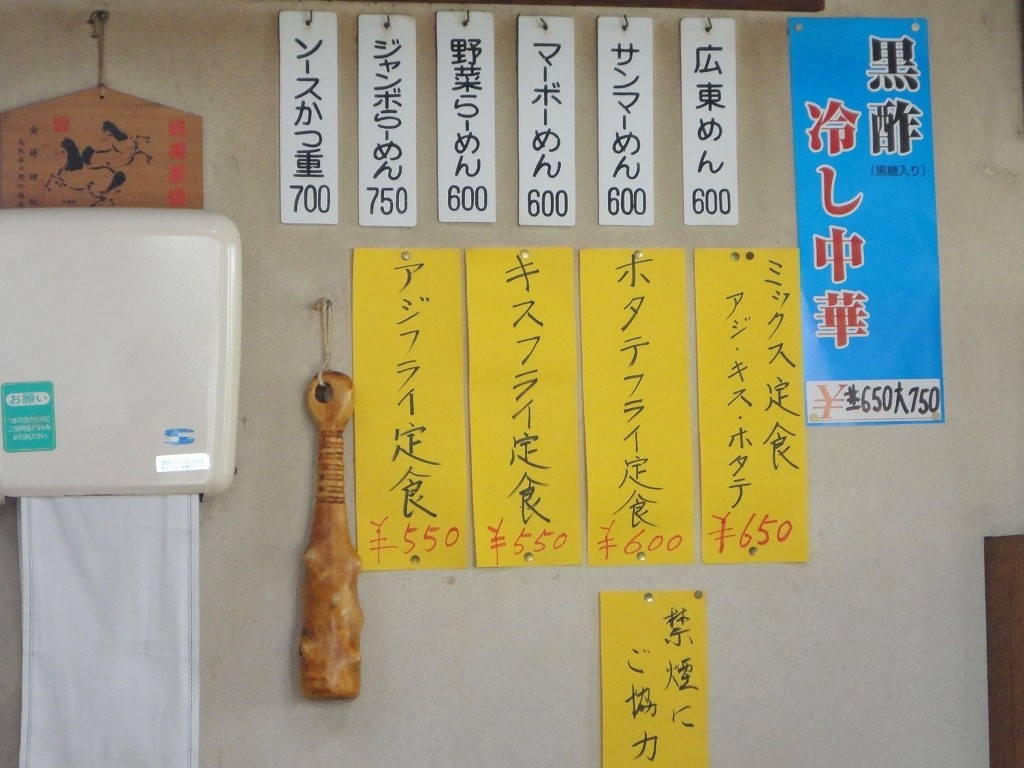 ソースかつ重
700
ジャンボらーめん
750
野菜らーめん
600
マーボーめん
600
サンマーめん
600
広東めん
600
黒酢
(黒糖入り)
冷し中華
¥並650大750
アジフライ定食
¥550
キスフライ定食
¥550
ホタテフライ定食
¥600
ミックス定食
アジ・キス・ホタテ
¥650
禁煙に
ご協力
お願い